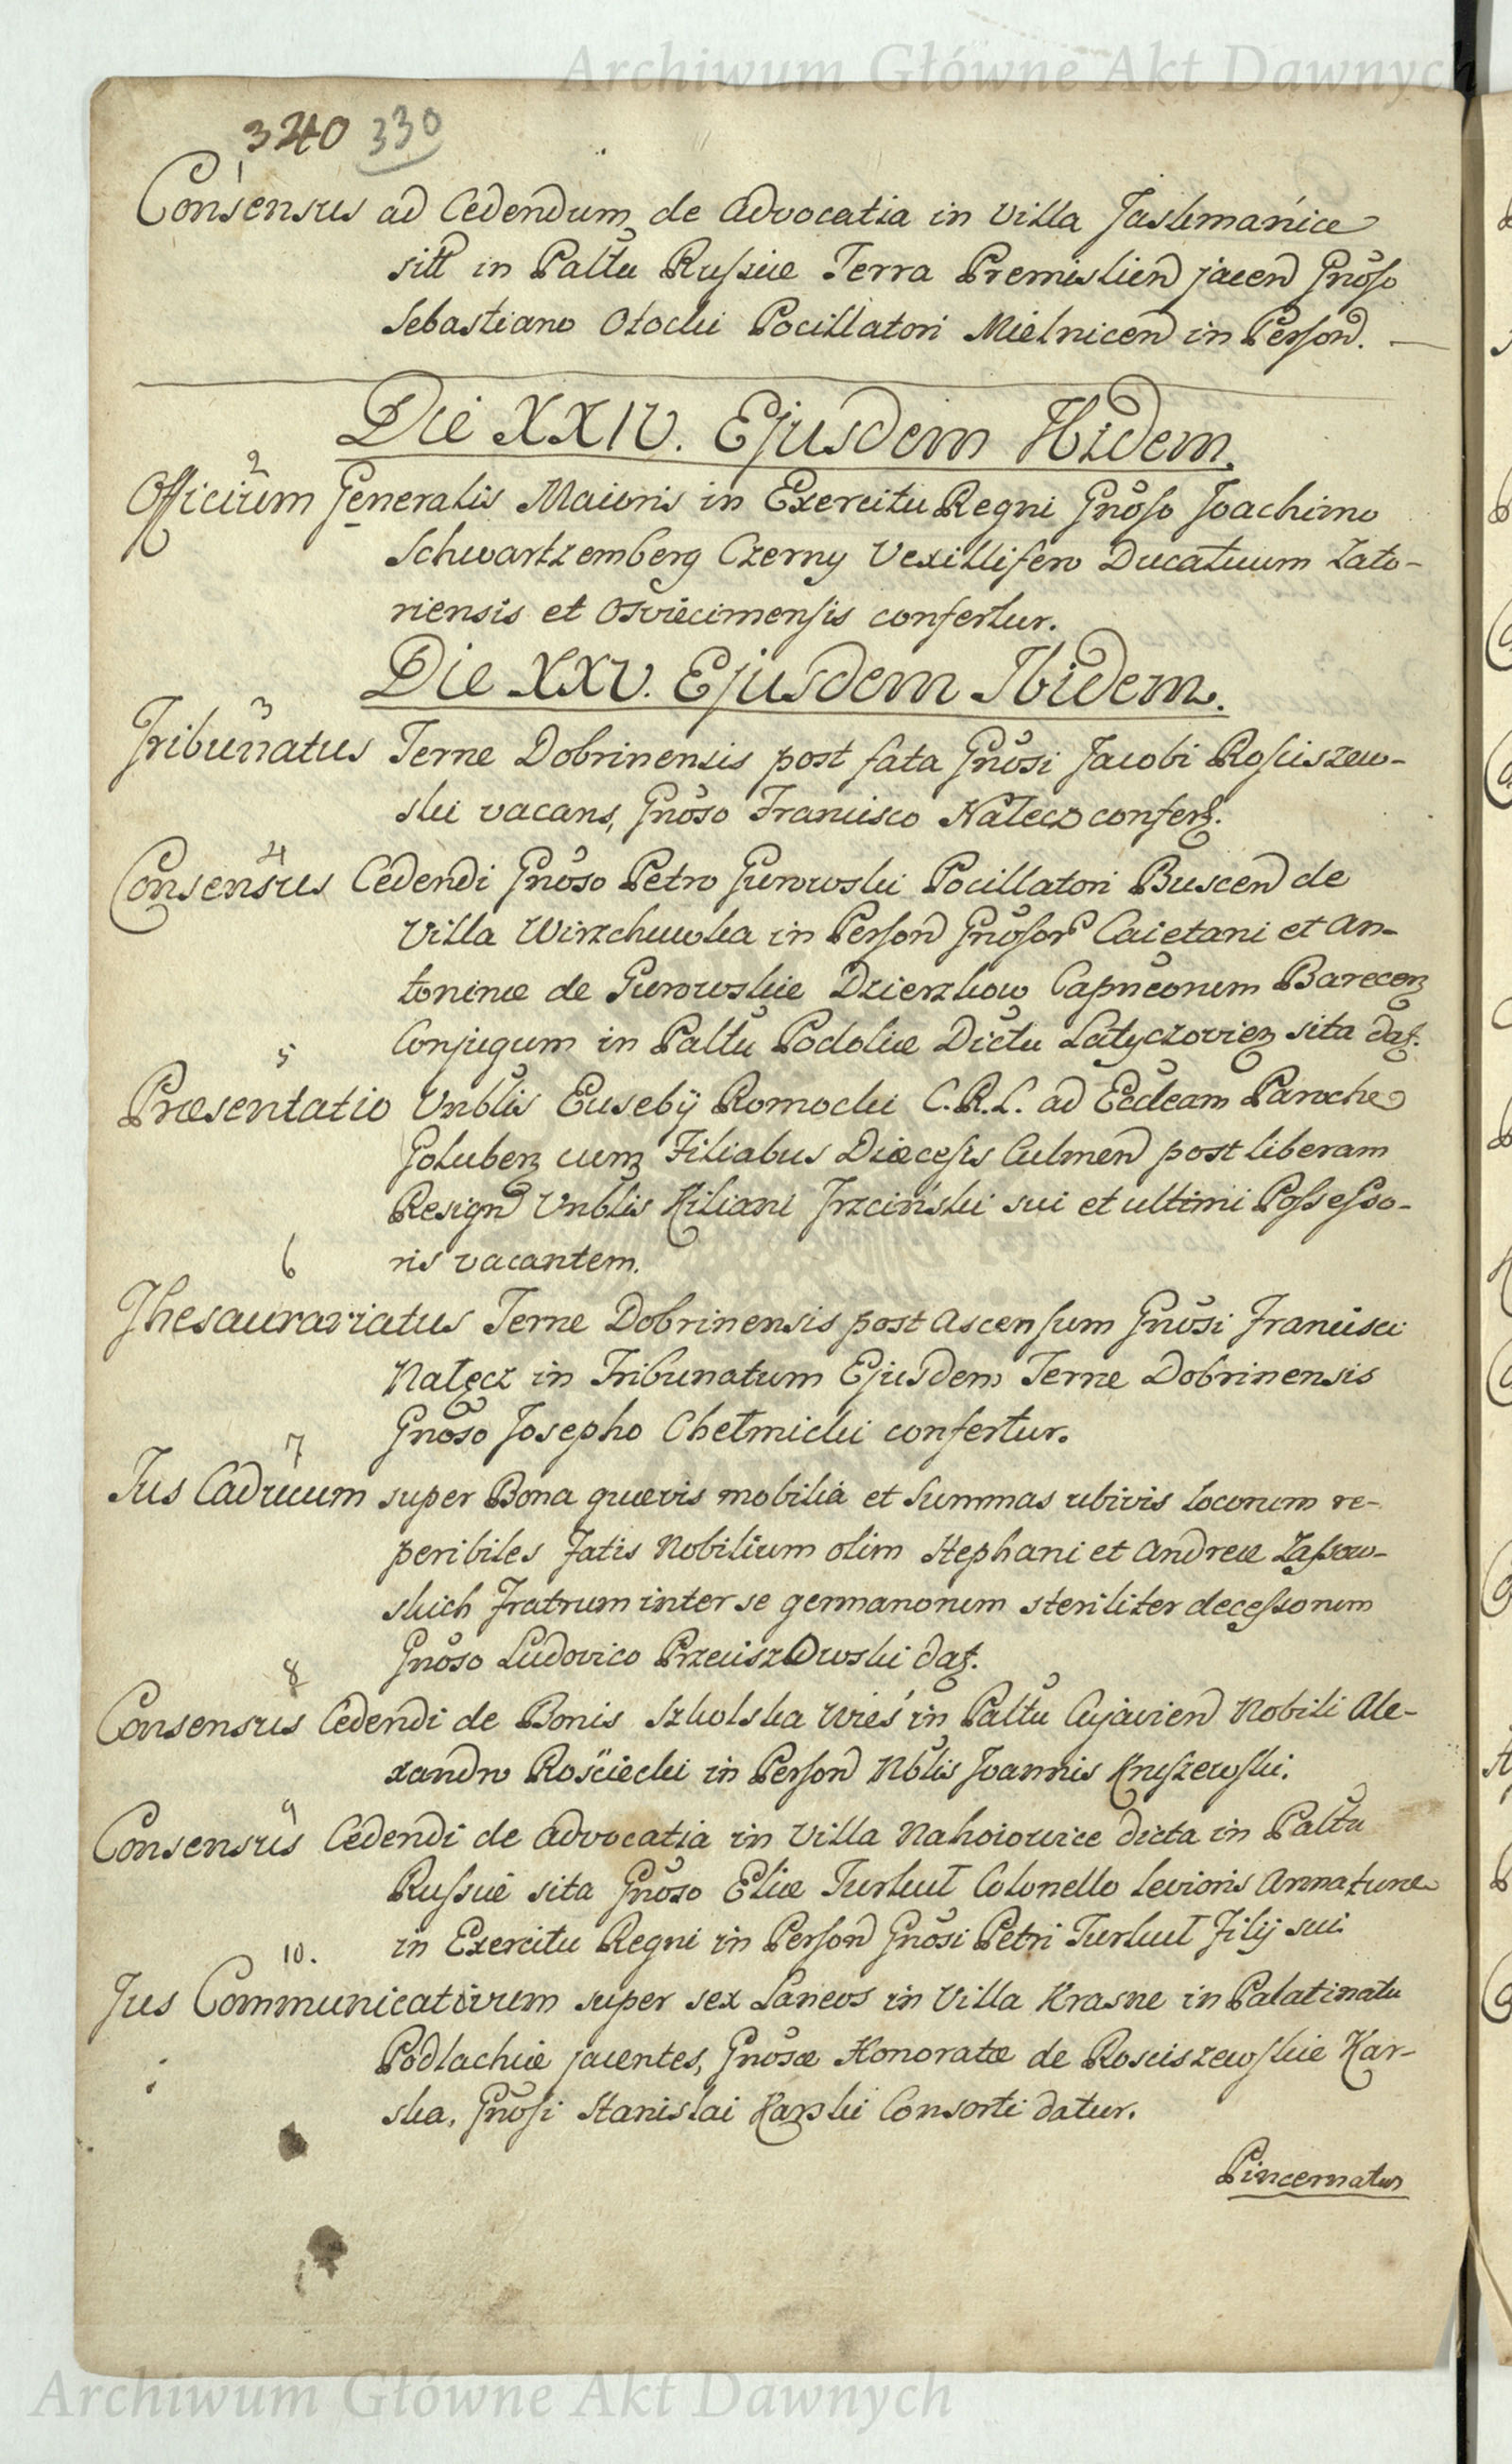 Archiwum Główne Akt Dawnych
340 330
1
Consensus ad Cedendum de Advocatia in Villa Jaskmanice
sitt in Paltu Russiæ Terra Premislien jacen Gnoso
Sebastiano Otocki Pocillatori Mielnicen in Person.
Die XXIV. Ejusdem Ibidem.
2
Officium Generalis Maioris in Exercitu Regni Gnoso Joachimo
Schwartzemberg Czerny Vexillifero Ducatuum Zato-
riensis et Osviecimensis confertur.
Die XXV. Ejusdem Ibidem.
3
Tribunatus Terræ Dobrinensis post fata Gnosi Jacobi Rosciszew-
ski vacans, Gnoso Francisco Nałecz confert.
4
Consensus Cedendi Gnoso Petro Gurowski Pocillatori Buscen de
Villa Wirzchuwka in Person Gnosor Caietani et An-
toninæ de Gurowskie Dzierzkow Capneorum Barecen
Conjugum in Paltu Podoliæ Dictu Latyczovien sita dat.
5
Præsentatio Vnblis Eusebij Romocki C.R.L. ad Eccleam Paroche
Goluben cum Filiabus Diæcesis Culmen post liberam
Resign Vnblis Kiliani Trzciński sui et ultimi Possesso-
ris vacantem.
6
Thesaurariatus Terræ Dobrinensis post Ascensum Gnosi Francisci
Nałęcz in Tribunatum Ejusdem Terræ Dobrinensis
Gnoso Josepho Chełmicki confertur.
7
Jus Caducum super Bona quævis mobilia et Summas ubivis locorum re-
peribiles Fatis Nobilium olim Stephani et Andreæ Zassow-
skich Fratrum inter se germanorum steriliter decessorum
Gnoso Ludovico Przeciszowski dat.
8
Consensus Cedendi de Bonis Szkolska Wieś in Paltu Cujavien Nobili Ale-
xandro Rościecki in Person Nblis Joannis Kruszewski.
9
Consensus Cedendi de Advocatia in Villa Nahoiowice dicta in Paltu
Russiæ sita Gnoso Eliæ Turkuł Colonello levioris Armaturæ
in Exercitu Regni in Person Gnosi Petri Turkuł Filij sui.
10.
Jus Communicativum super sex Laneos in Villa Krasne in Palatinatu
Podlachiæ jacentes, Gnosæ Honoratæ de Rosciszewskie Kar-
ska, Gnosi Stanislai Karski Consorti datur.
Pincernatus
Archiwum Główne Akt Dawnych